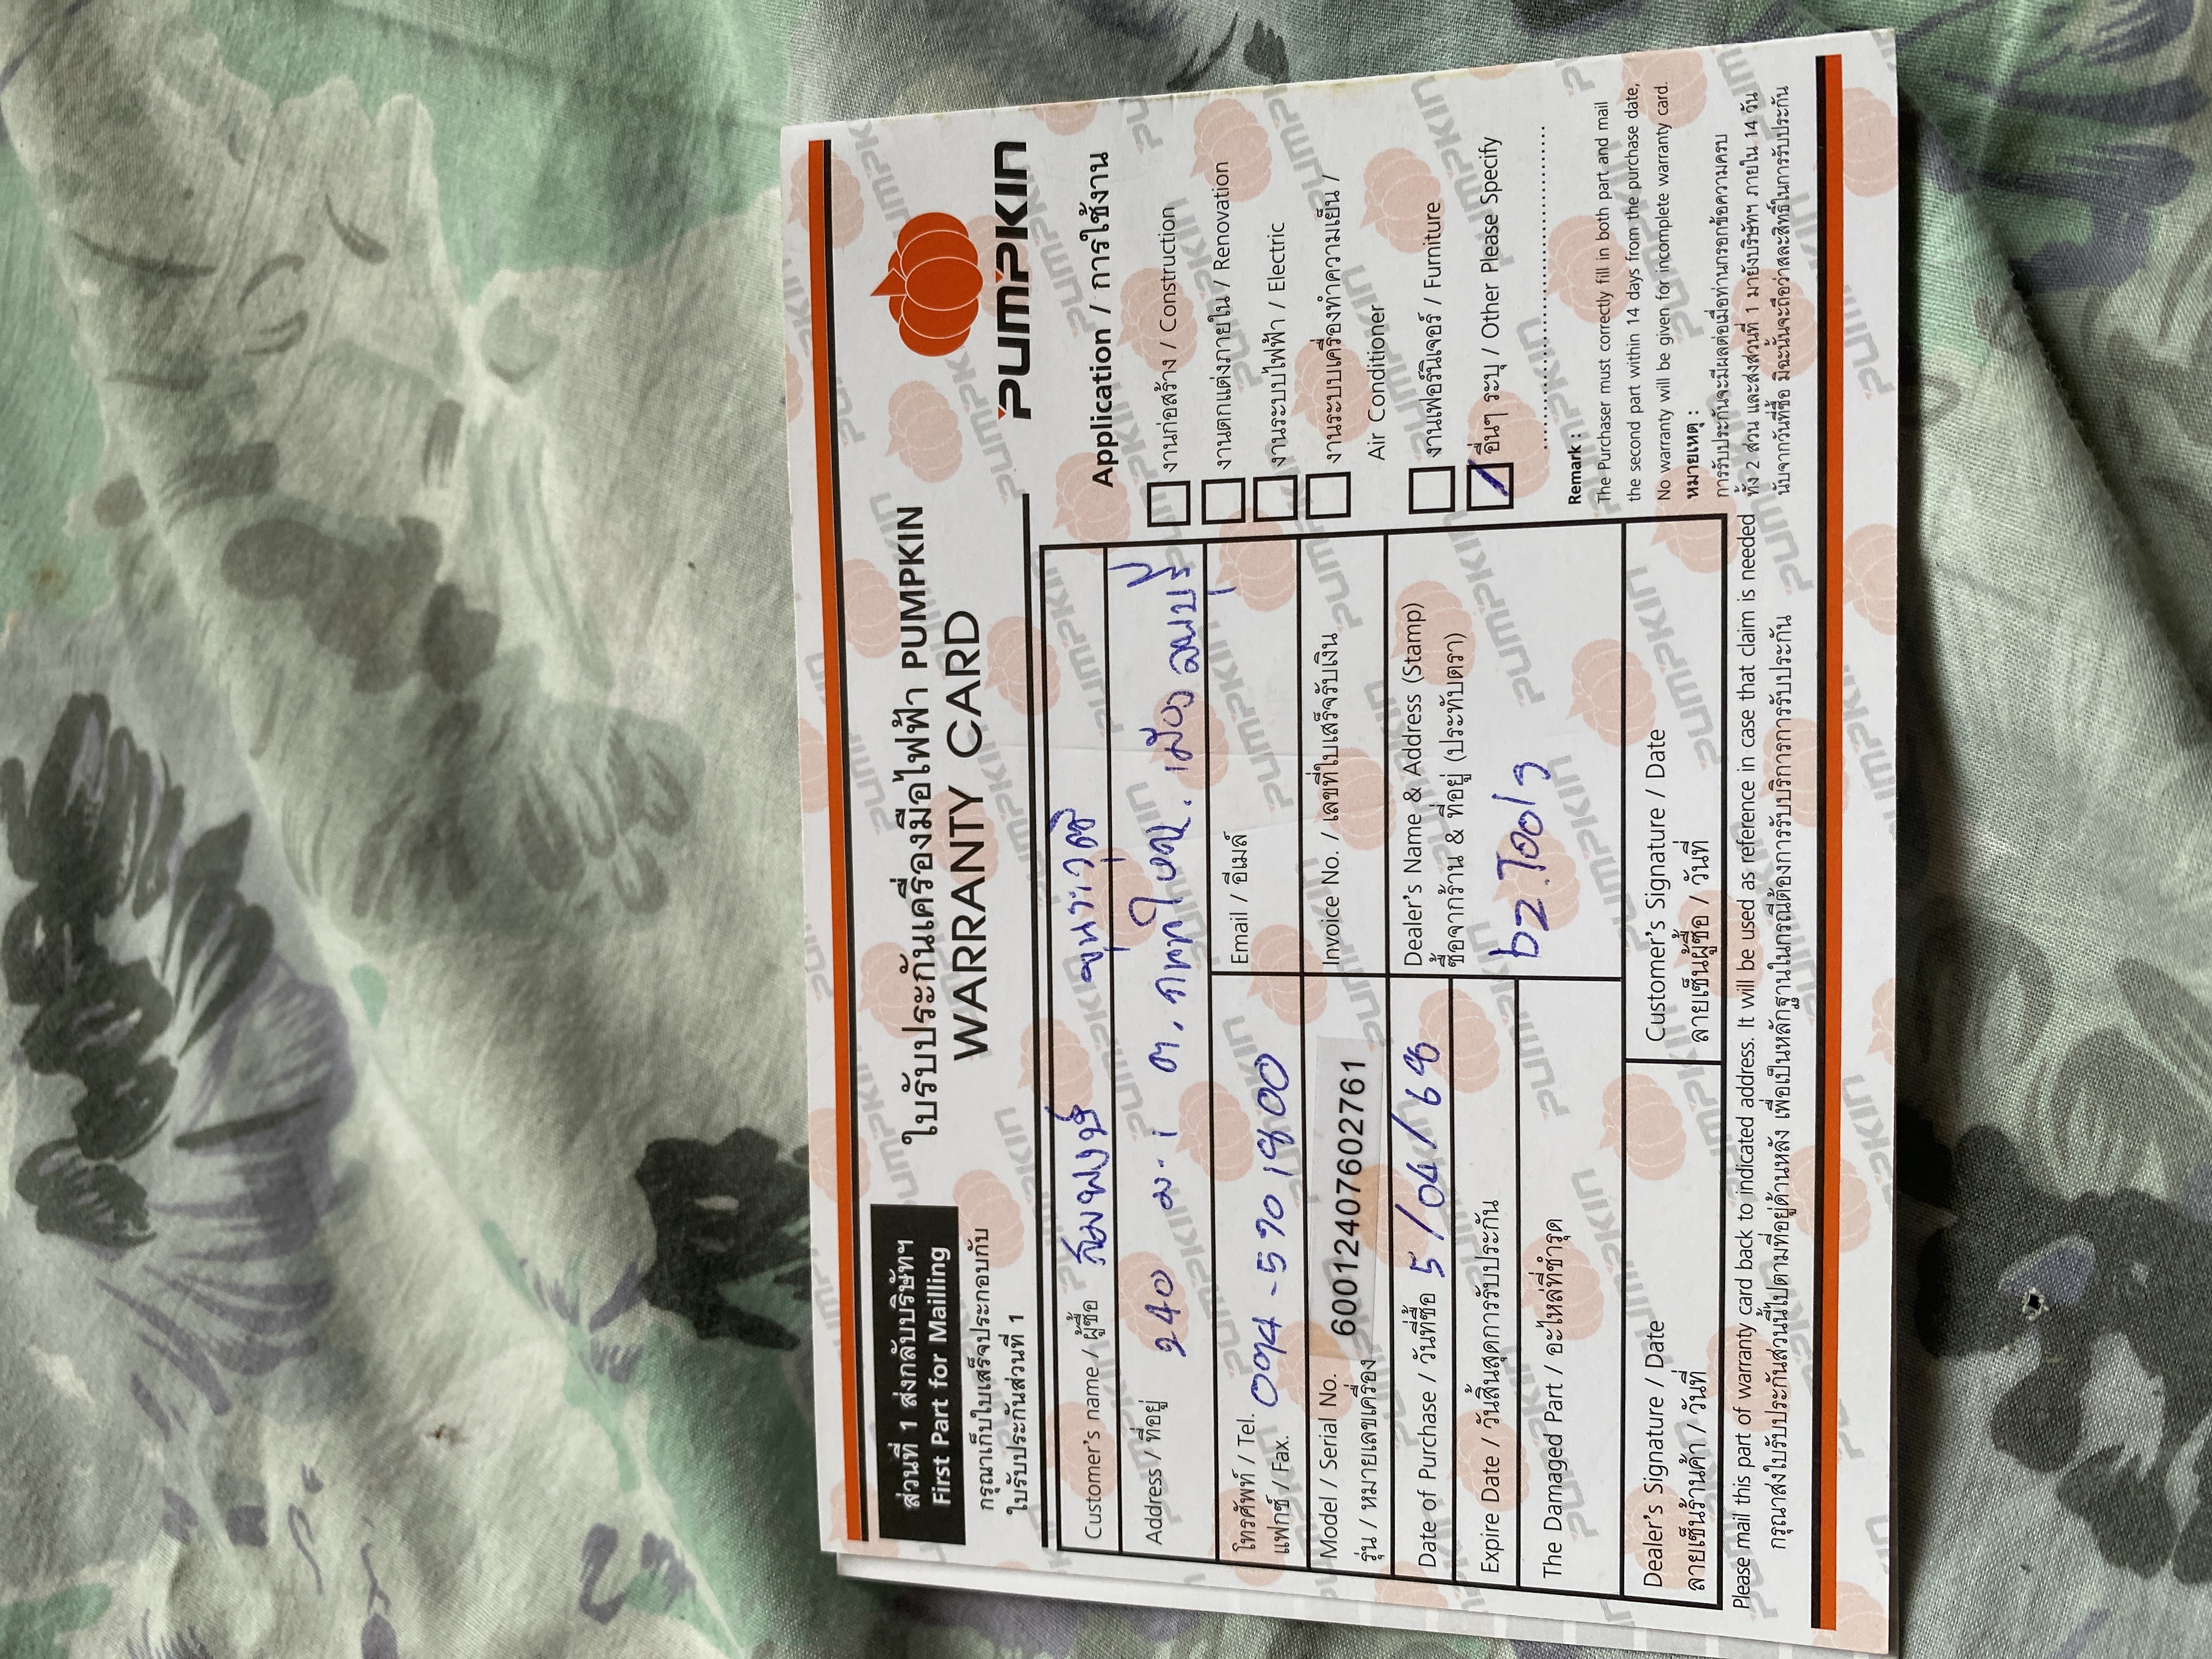 ส่วนที่ 1 ส่งกลับบริษัทฯ
First Part for Mailling
กรุณาเก็บใบเสร็จประกอบกับ
ใบรับประกันส่วนที่ 1
ใบรับประกันเครื่องมือไฟฟ้า PUMPKIN
WARRANTY CARD
PUMPKIN
Customer's name / ผู้ซื้อ สมพงษ์
Address / ที่อยู่ 240 ม.1 ต. เมือง ลพบุรี
โทรศัพท์ / Tel. 094-5901800
แฟกซ์ / Fax.
Email / อีเมล์
Model / Serial No. 6001240760​2761
รุ่น / หมายเลขเครื่อง
Invoice No. / เลขที่ใบเสร็จรับเงิน
Date of Purchase / วันที่ซื้อ 5/04/68
Expire Date / วันสิ้นสุดการรับประกัน
The Damaged Part / อะไหล่ที่ชำรุด
Dealer's Name & Address (Stamp)
ซื้อจากร้าน & ที่อยู่ (ประทับตรา)
bz.Tools
Dealer's Signature / Date
ลายเซ็นร้านค้า / วันที่
Customer's Signature / Date
ลายเซ็นผู้ซื้อ / วันที่
Application / การใช้งาน
งานก่อสร้าง / Construction
งานตกแต่งภายใน / Renovation
งานระบบไฟฟ้า / Electric
งานระบบเครื่องทำความเย็น /
Air Conditioner
งานเฟอร์นิเจอร์ / Furniture
อื่นๆ ระบุ / Other Please Specify
Remark :
The Purchaser must correctly fill in both part and mail
the second part within 14 days from the purchase date,
No warranty will be given for incomplete warranty card.
หมายเหตุ :
การรับประกันจะมีผลต่อเมื่อท่านกรอกข้อความครบ
ทั้ง 2 ส่วน และส่งส่วนที่ 1 มายังบริษัทฯ ภายใน 14 วัน
นับจากวันที่ซื้อ มิฉะนั้นจะถือว่าสละสิทธิ์ในการรับประกัน
Please mail this part of warranty card back to indicated address. It will be used as reference in case that claim is needed
กรุณาส่งใบรับประกันส่วนนี้ไปตามที่อยู่ด้านหลัง เพื่อเป็นหลักฐานในกรณีต้องการรับบริการการรับประกัน